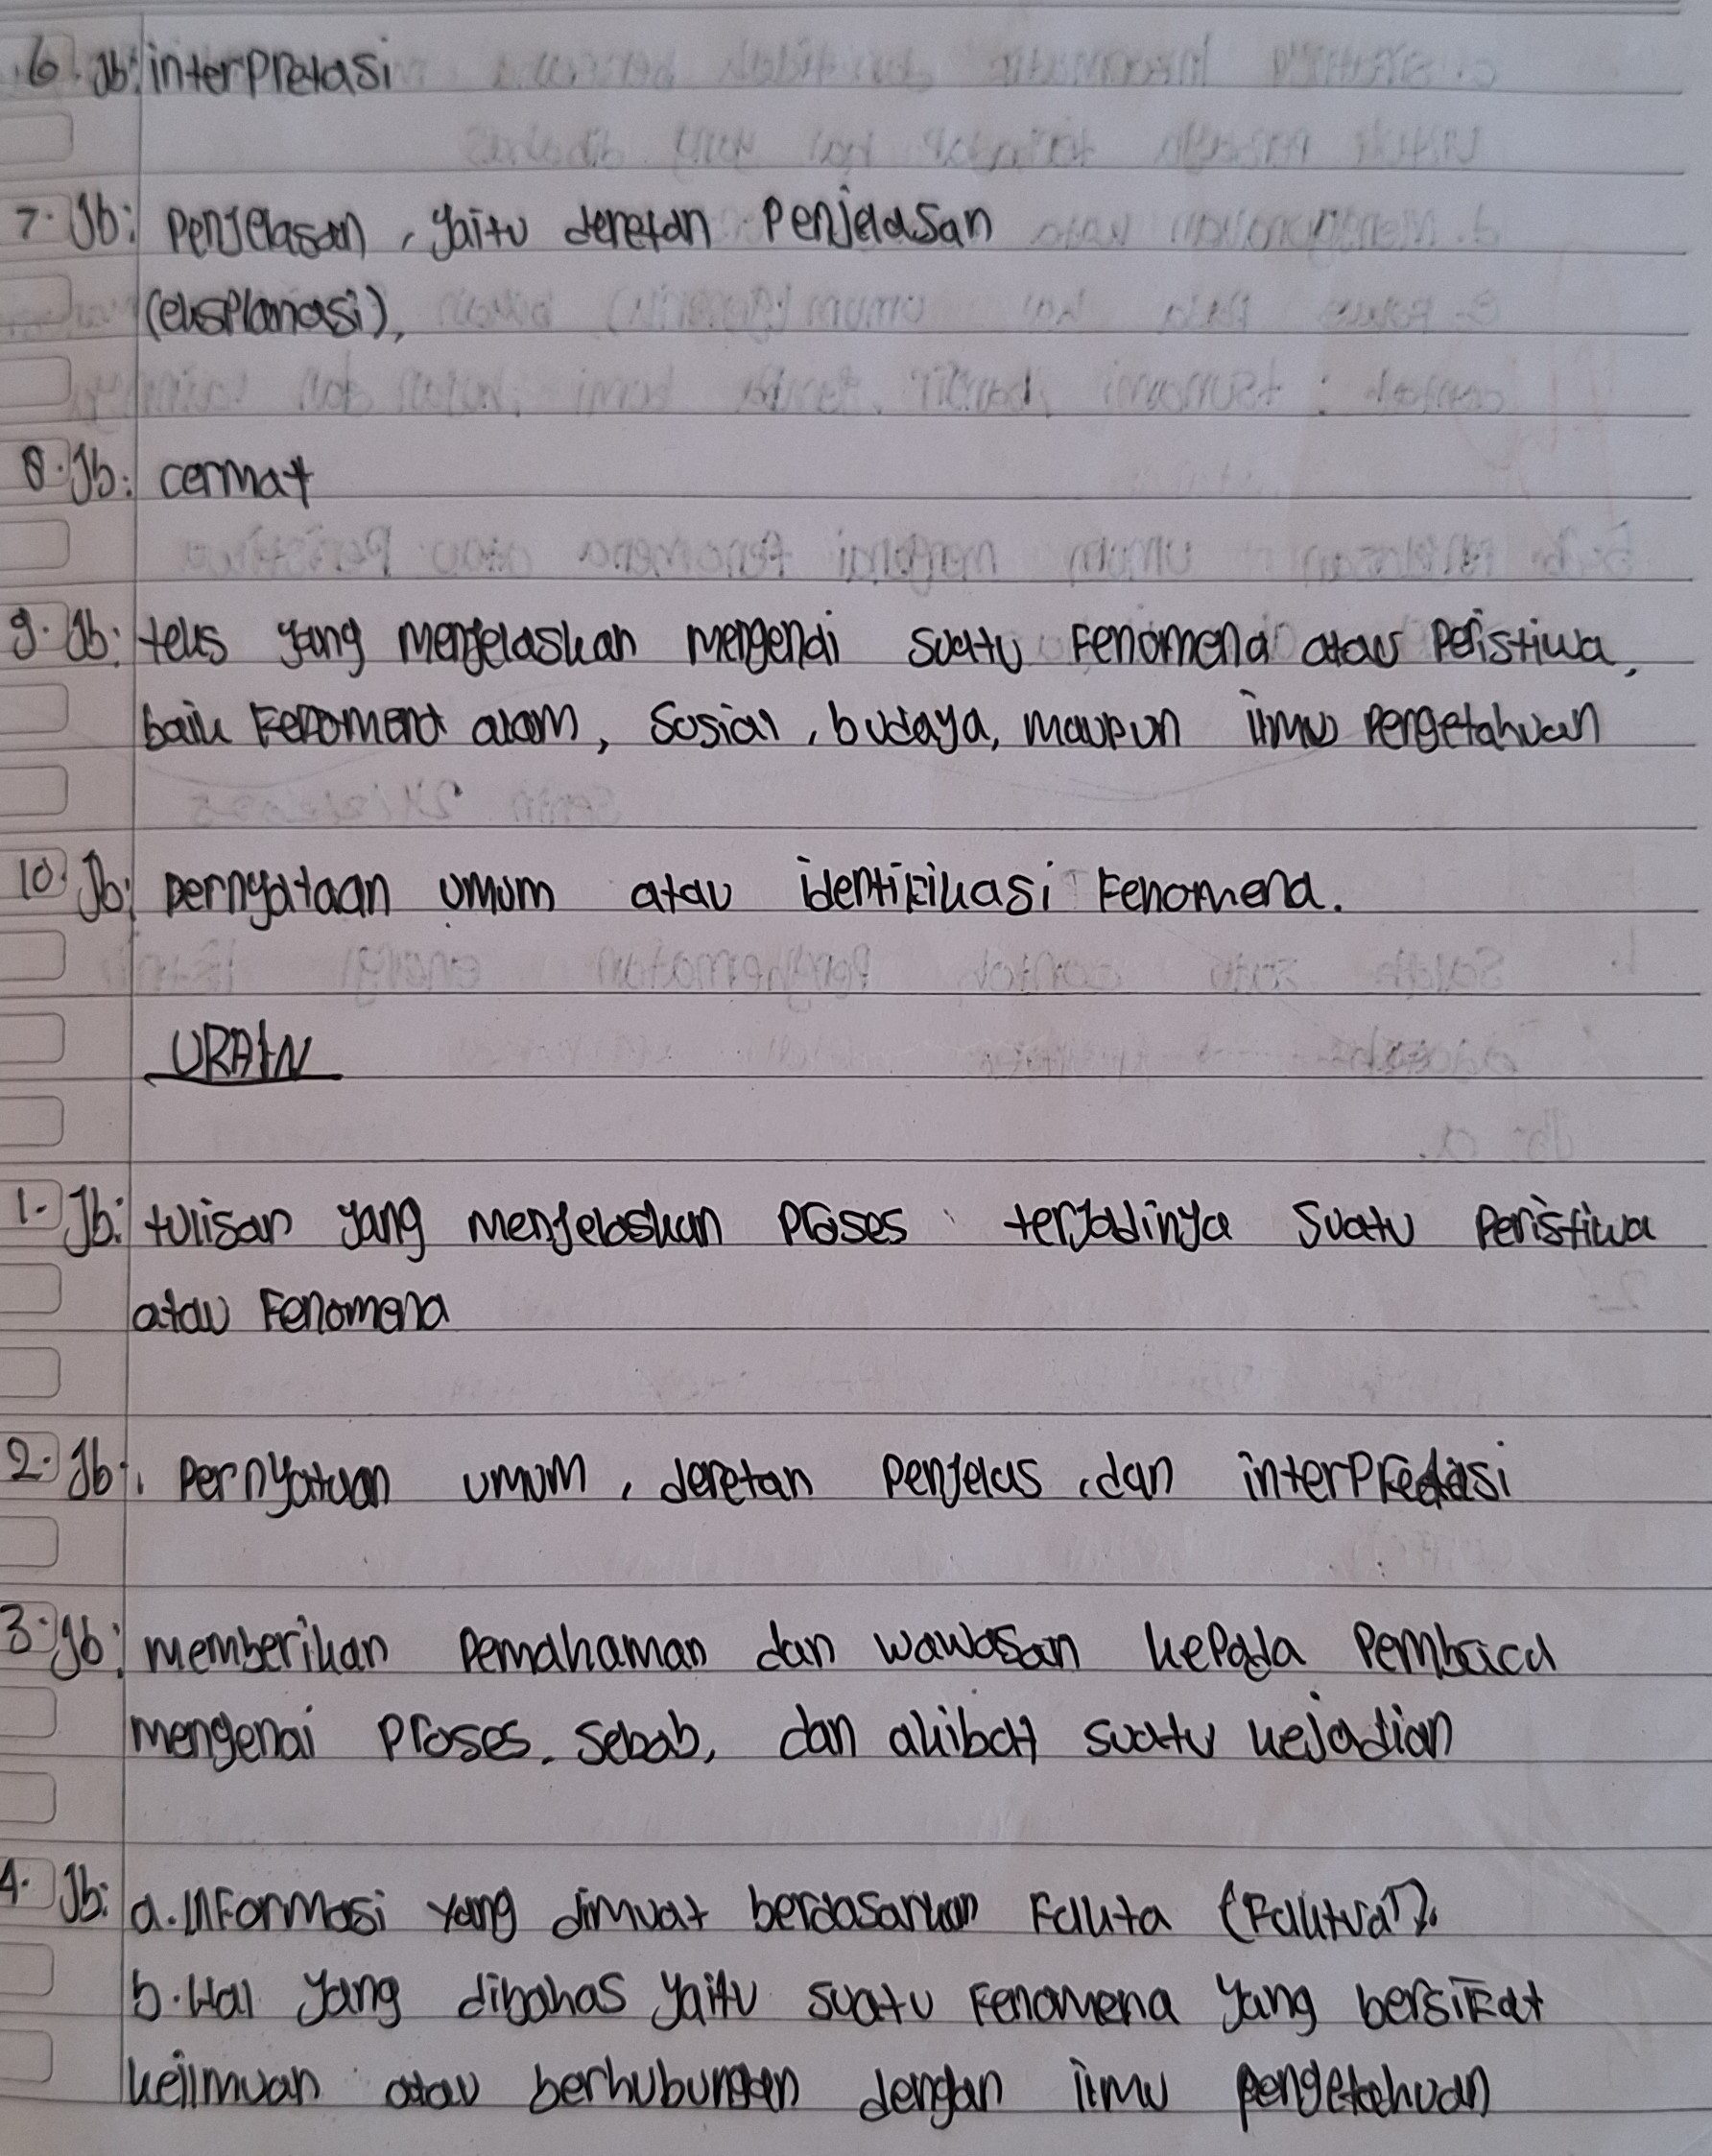 6. Jb: interpretasi
7. Jb: Penjelasan, yaitu deretan Penjelasan
(eksplanasi),
8. Jb: cermat
9. Jb: teks yang menjelaskan mengenai suatu Fenomena atau Peristiwa,
baik Fenomena alam, Sosial, budaya, maupun ilmu Pengetahuan
10. Jb: pernyataan umum atau identifikasi Fenomena.
URAIN
1. Jb: tulisan yang menjelaskan proses terjadinya Suatu Peristiwa
atau Fenomena
2. Jb: Pernyatuan umum, deretan Penjelas, dan interpretasi
3. Jb: memberikan Pemahaman dan wawasan kepada Pembaca
mengenai Proses, Sebab, dan akibat suatu kejadian
4. Jb: a. Informasi yang dimuat berdasarkan Fakta (Faktual).
b. Hal yang dibahas yaitu suatu Fenomena yang bersifat
keilmuan atau berhubungan dengan ilmu pengetahuan